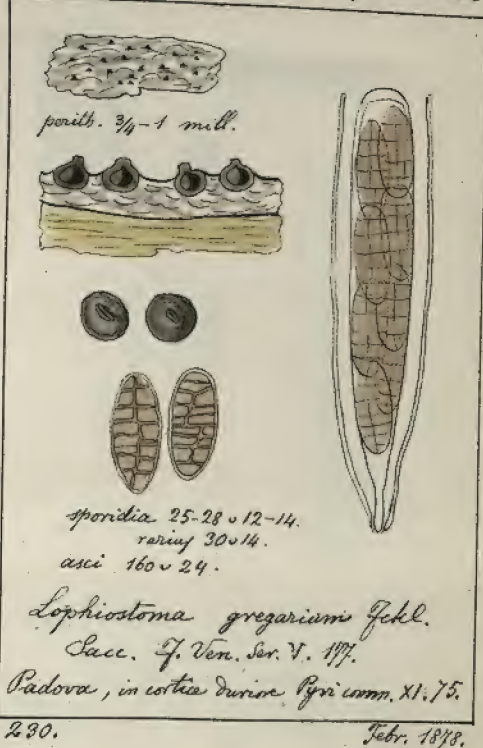 perith. 3/4–1 mill.
sporidia 25-28 ѵ 12-14.
rarius 30 ѵ 14.
asci 160 ѵ 24.
Lophiostoma gregarium Fckl.
Sacc. F. Ven. Ser. V. 177.
Padova, in cortice duriore Pyri comm. XI. 75.
230.
Febr. 1878.